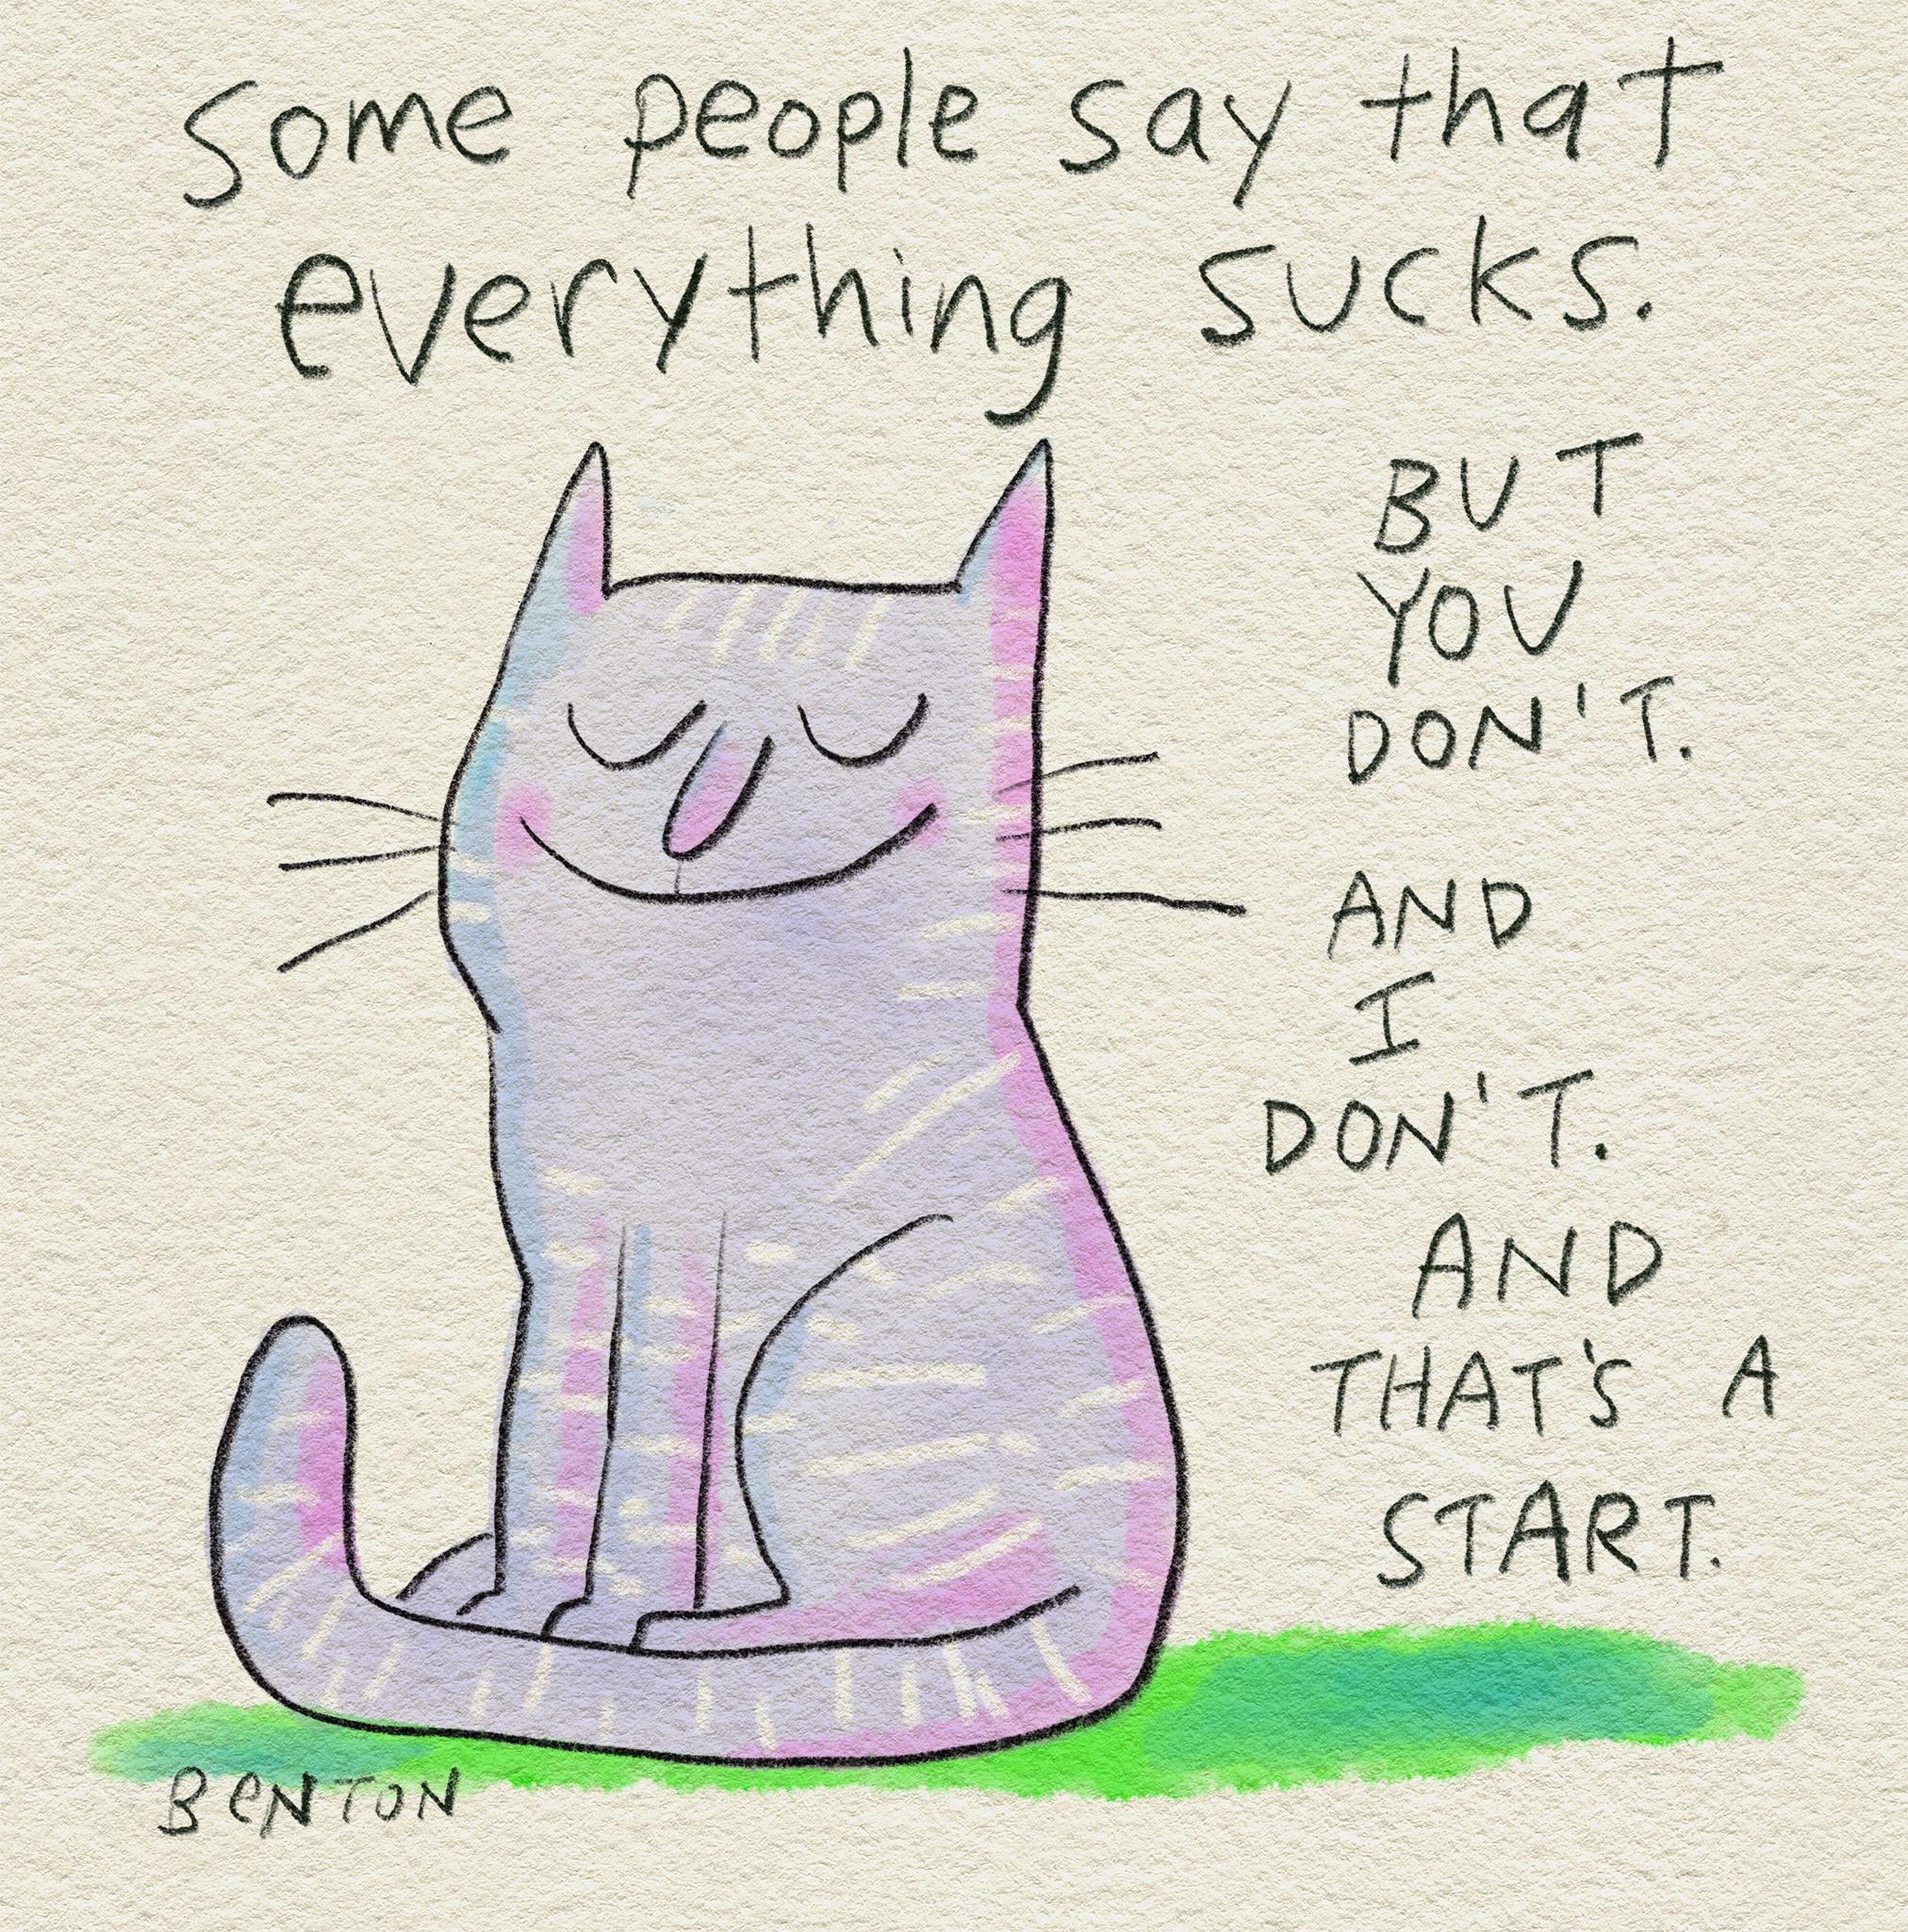 some people say that
everything sucks.
BUT
YOU
DON'T.
AND
I
DON'T.
AND
THAT'S A
START.
BeNTON